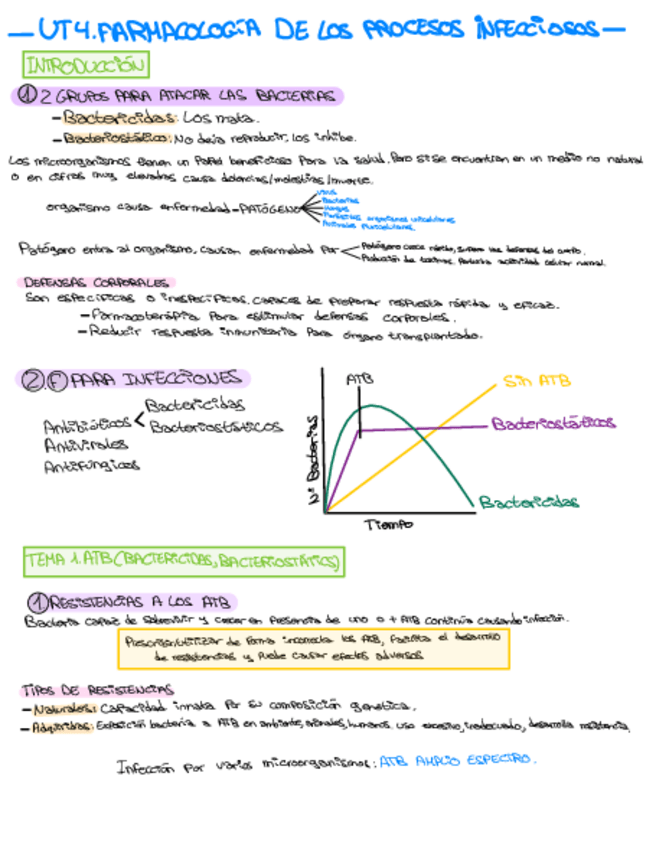 — UT4. FARMACOLOGÍA DE LOS PROCESOS INFECCIOSOS —
INTRODUCCIÓN
① 2 GRUPOS PARA ATACAR LAS BACTERIAS
- Bactericidas: Los mata.
- Bacteriostático: No deja reproducir, los inhibe.
Los microorganismos tienen un papel beneficioso para la salud. Pero si se encuentran en un medio no natural
o en cifras muy elevadas causa dolencias/molestias/muerte.
organismo causa enfermedad - PATÓGENO
Virus
Bacterias
Hongos
Parásitos organismos unicelulares
Animales pluricelulares.
Patógeno entra al organismo, causan enfermedad por
Patógeno crece rápido, supera las defensas del cuerpo.
Producción de toxinas. Perturba actividad celular normal.
DEFENSAS CORPORALES
Son específicas o inespecíficas. capaces de preparar respuesta rápida y eficaz.
- Farmacoterapia para estimular defensas corporales.
- Reducir respuesta inmunitaria para órgano transplantado.
②. Ⓕ PARA INFECCIONES
Antibióticos
Bactericidas
Bacteriostáticos
Antivirales
Antifúngicos
ATB
Sin ATB
Bacteriostáticos
Bactericidas
Nº Bacterias
Tiempo
TEMA 1. ATB (BACTERICIDAS, BACTERIOSTÁTICS)
① RESISTENCIAS A LOS ATB
Bacteria capaz de sobrevivir y crecer en presencia de uno o + ATB continúa causando infección.
de forma incorrecta los ATB, facilita el desarrollo
de resistencias y puede causar efectos adversos
TIPOS DE RESISTENCIAS
- Naturales: Capacidad innata por su composición genética.
- Adquiridas: Exposición bacteria a ATB en ambiente, animales, humanos. uso excesivo, inadecuado, desarrolla resistencia.
Infección por varios microorganismos: ATB AMPLIO ESPECTRO.